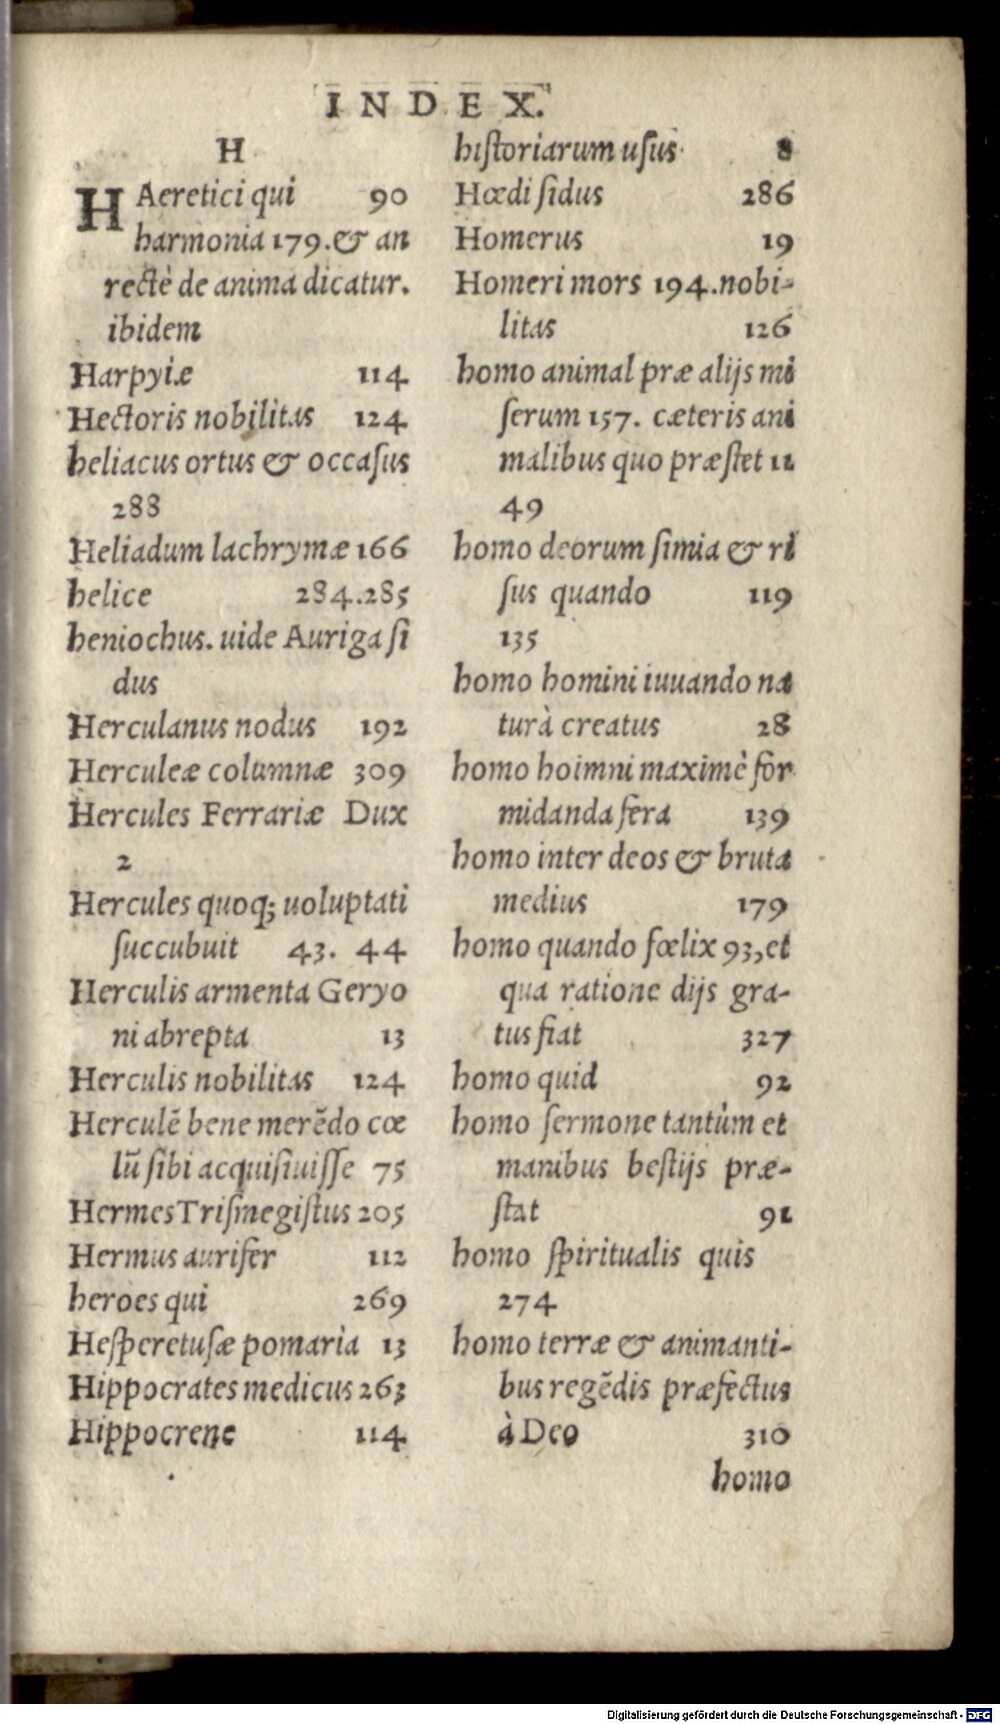 INDEX.
H
HAeretici qui 90
harmonia 179.& an
rectè de anima dicatur.
ibidem
Harpyiæ 114
Hectoris nobilitas 124
heliacus ortus & occaſus
288
Heliadum lachrymæ 166
helice 284.285
heniochus. uide Auriga ſi
dus
Herculanus nodus 192
Herculeæ columnæ 309
Hercules Ferrariæ Dux
2
Hercules quoq; uoluptati
ſuccubuit 43. 44
Herculis armenta Geryo
ni abrepta 13
Herculis nobilitas 124
Herculẽ bene merẽdo cœ
lũ ſibi acquiſiuiſſe 75
Hermes Triſmegiſtus 205
Hermus aurifer 112
heroes qui 269
Heſperetuſæ pomaria 13
Hippocrates medicus 263
Hippocrene 114
hiſtoriarum uſus 8
Hœdi ſidus 286
Homerus 19
Homeri mors 194.nobi-
litas 126
homo animal præ alijs mi
ſerum 157. cæteris ani
malibus quo præſtet 11
49
homo deorum ſimia & ri
ſus quando 119
135
homo homini iuuando na
turà creatus 28
homo hoimni maximè for
midanda fera 139
homo inter deos & bruta
medius 179
homo quando fœlix 93,et
qua ratione dijs gra-
tus fiat 327
homo quid 92
homo ſermone tantùm et
manibus beſtijs præ-
ſtat 91
homo ſpiritualis quis
274
homo terræ & animanti-
bus regẽdis præfectus
à Deo 310
homo
Digitalisierung gefördert durch die Deutsche Forschungsgemeinschaft - DFG